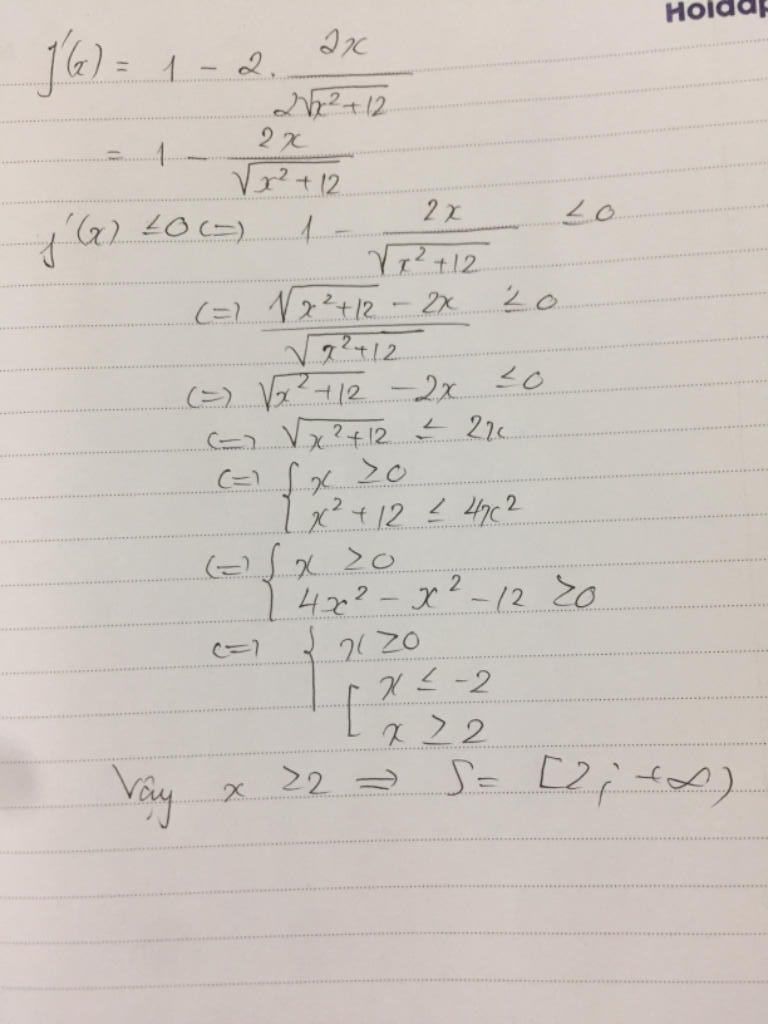 Hoidap
f'(x) = 1 - 2. 2x / 2√(x²+12)
= 1 - 2x / √(x²+12)
f'(x) ≤ 0 (=) 1 - 2x / √(x²+12) ≤ 0
(=) (√(x²+12) - 2x) / √(x²+12) ≤ 0
(=) √(x²+12) - 2x ≤ 0
(=) √(x²+12) ≤ 2x
(=) { x ≥ 0
x² + 12 ≤ 4x²
(=) { x ≥ 0
4x² - x² - 12 ≥ 0
(=) { x ≥ 0
[ x ≤ -2
x ≥ 2
Vậy x ≥ 2 => S = [2; +∞)